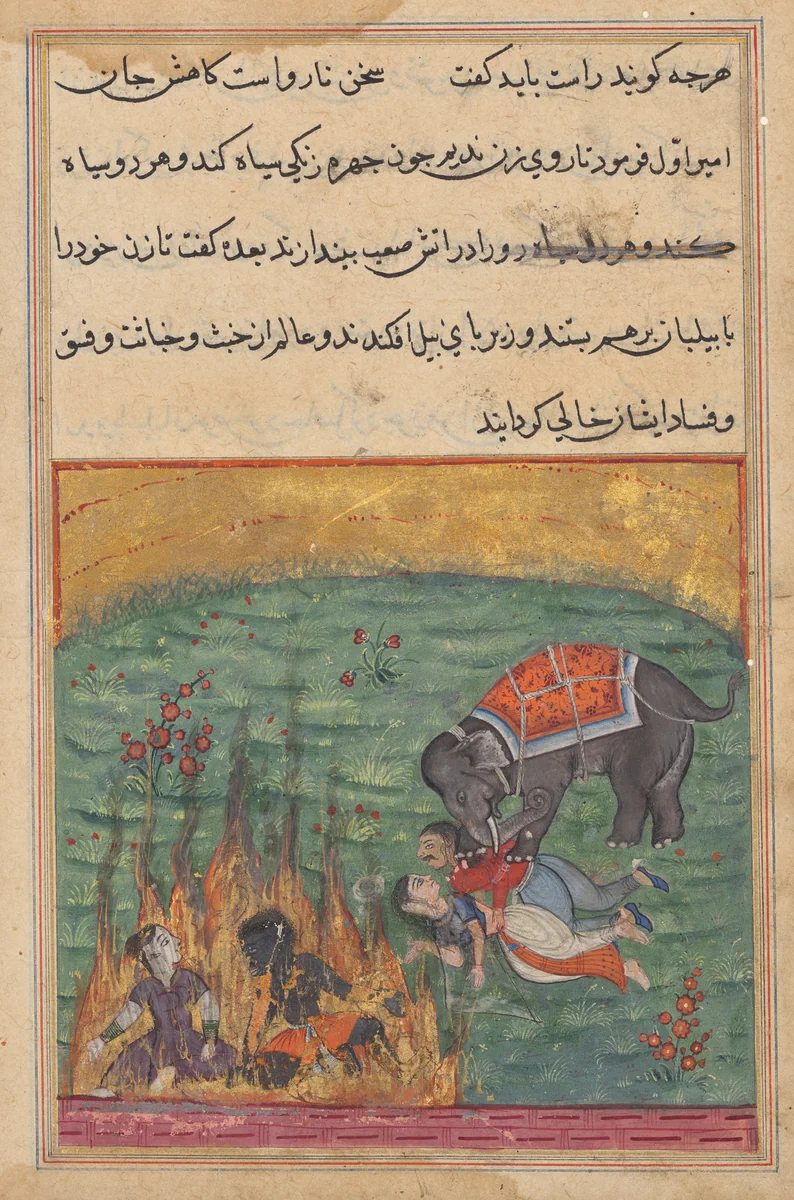 هرجه کویند راست باید کفت سخن نارواست کاهش جان
امیر اوّل فرمود تا روی زن ندیم جون جهرهٔ زنکی سیاه کند و هر دو سیاه
کند و هر دو سیاه رو را در اتش صعب بیندازند بعده کفت تا زن خود را
با بیلبان بر هم بستند و زیر بای بیل افکندند و عالم از خبث و خباثت و فسق
و فساد ایشان خالی کردایند